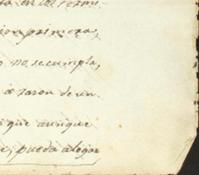 en los
ion primera,
no se cumpla,
à razon de un
que aunque
e, pueda alegar